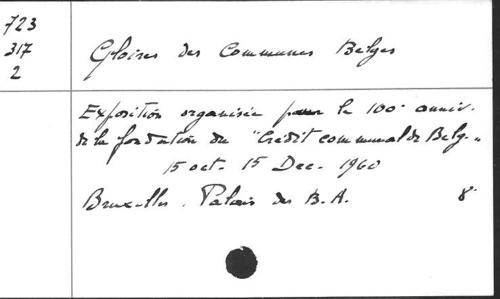 723
317
2
Gloires des Communes Belges
Exposition organisée pour le 100e anniv.
de la fondation du "Crédit communal de Belg."
15 oct. 15 Dec. 1960
Bruxelles. Palais des B.A. 8°